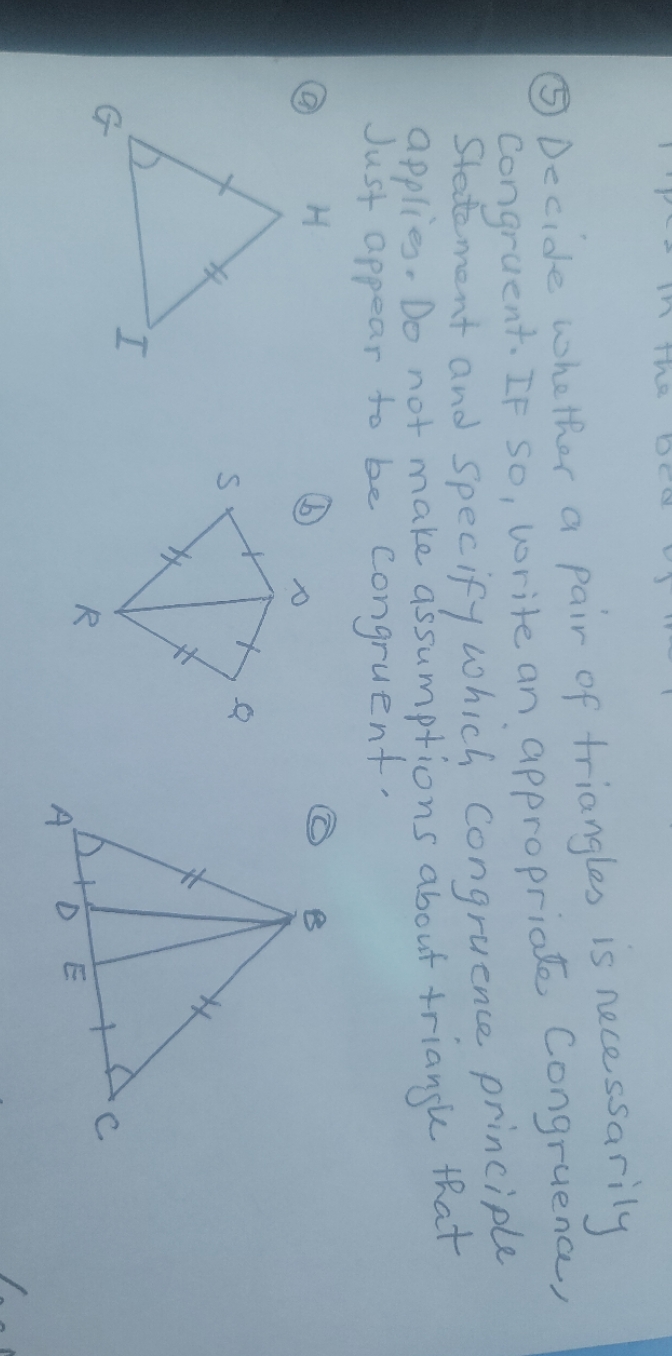 in the
⑤ Decide whether a pair of triangles is necessarily
Congruent. If so, write an appropriate Congruence,
Statement and specify which congruence principle
applies. Do not make assumptions about triangle that
Just appear to be congruent.
ⓐ ⓑ ⓒ
H B
S Q
G I R A D E C